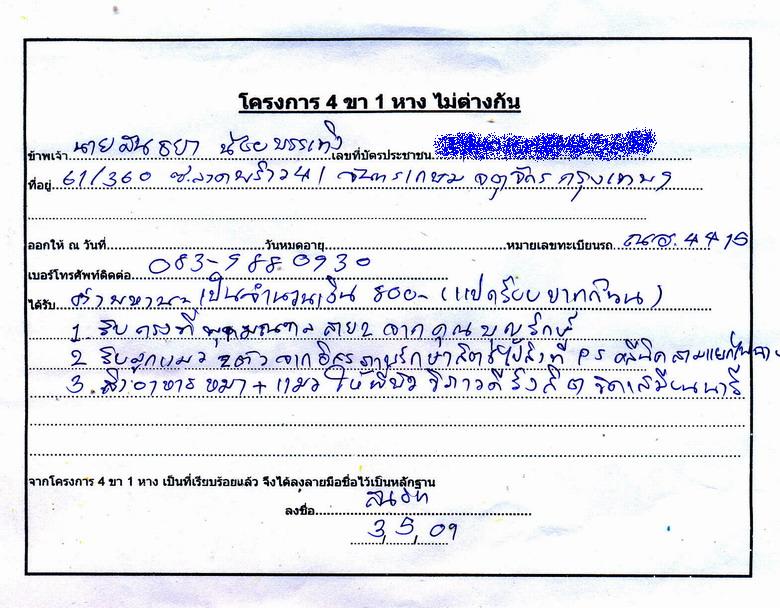 โครงการ 4 ขา 1 หาง ไม่ต่างกัน
ข้าพเจ้า นาย สนธยา น้อยบรรเทิง เลขที่บัตรประชาชน
ที่อยู่ 61/360 ซ.ลาดพร้าว 41 จันทรเกษม จตุจักร กรุงเทพฯ
ออกให้ ณ วันที่ วันหมดอายุ หมายเลขทะเบียนรถ 4415
เบอร์โทรศัพท์ติดต่อ 083-988 0930
ได้รับ ค่าพาหนะ เป็นจำนวนเงิน 800- (แปดร้อยบาทถ้วน)
1. รับ กรงที่ พุทธมณฑล สาย 2 จาก คุณ บุญรักษ์
2 รับลูกแมว 2 ตัว จาก ไปส่งที่ PS คลีนิค สามแยก
3. อาหาร หมา + แมว ให้ วิภาวดี รังสิต
จากโครงการ 4 ขา 1 หาง เป็นที่เรียบร้อยแล้ว จึงได้ลงลายมือชื่อไว้เป็นหลักฐาน
ลงชื่อ
3, 5, 09